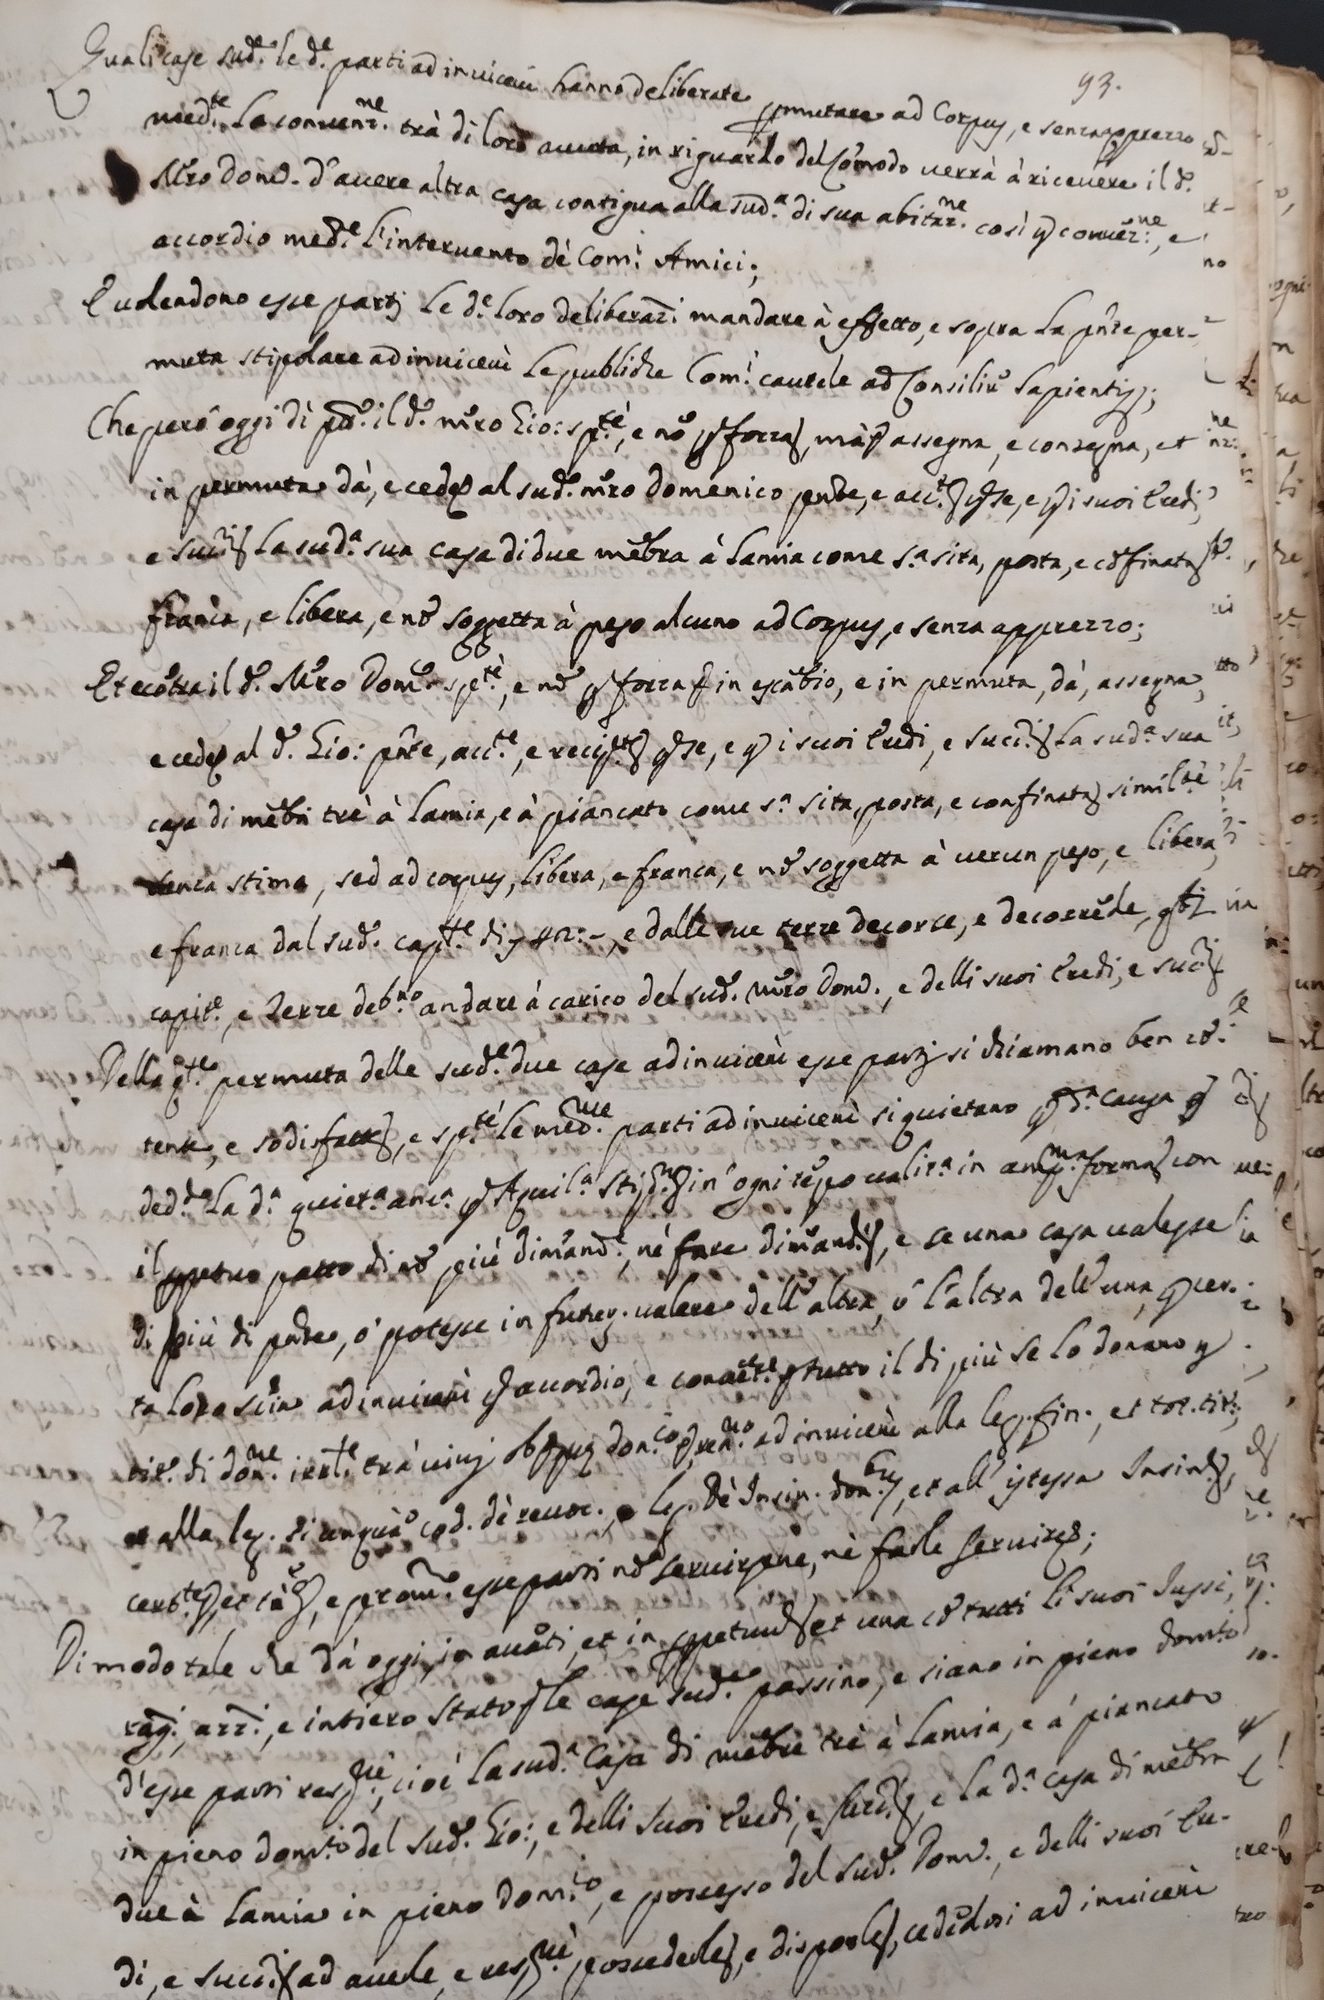 93.
Quali case sud.e le d.e parti ad invicem hanno deliberate permutare ad Corpus, e senza apprezzo
med.te la convenz.ne trà di loro avuta, in riguardo del Comodo verrà à ricevere il d.o
Mro Dom.o d'avere altra casa contigua alla sud.a di sua abitaz.ne così p convenz.ne, e
accordio med.e l'intervento de Com.i Amici;
E volendono esse parti le d.e loro deliberaz.i mandare à effetto, e sopra la pnte per-
muta stipolare ad invicem le publiche Com.i cautele ad Consiliu Sapientis;
Che però oggi dì pto il d.o mro Gio: sp.te, e no p forza, mà assegna, e consegna, et
in permuta dà, e cede al sud.o mro Domenico pnte, e acc.te p se, e p i suoi Eredi,
e succ.i la sud.a sua casa di due mebra à lamia come s.a sita, posta, e cofinata
franca, e libera, e no soggetta à peso alcuno ad Corpus, e senza apprezzo;
Etecotra il d.o Mro Dom.o sp.te, e no p forza in escabio, e in permuta, dà, assegna,
e cede al d.o Gio: pnte, acc.te, e recip.te p se, e p i suoi Eredi, e succ.i la sud.a sua
casa di mebri trè à lamia, e à piancato come s.a sita, posta, e confinata simil.te
senza stima, sed ad corpus, libera, e franca, e no soggetta à verun peso, e libera,
e franca dal sud.o capit.e di, e dalle sue terze decorse, e decorrede,
capit.e, e Terze deb.no andare à carico del sud.o mro Dom.o, e delli suoi Eredi, e succ.i
Della q.le permuta delle sud.e due case ad invicem esse parti si chiamano ben co-
tente, e sodisfatte, e sp.te le med.me parti ad invicem si quietano p d.a causa p
la d.a quiet.a anc.a p Aquil.a stip.ne in ogni tepo valit.a in amp.ma forma con
il ppetuo patto di no più dimand.e, nè fare dimand.e, e se una casa valesse
di più di pnte, ò potesse in futur. valere dell'altra, ò l'altra dell'una, p cer-
ta loro scia ad invicem p accordio, e tutto il di più se lo donano p
tit.o di don.ne irr.le trà vivi ad invicem alla leg. fin., et tot. tit.;
et alla leg. si unqua cod. de revoc., e leg. de Insin. don.bus, et all'istessa
certe, et, e prom.o esse parti no servirsene, nè farle servire;
Di modo tale che dà oggi in avati, et in ppetuu et una co tutti li suoi Jussi,
rag.i, az.i, e intiero stato le case sud.e passino, e siano in pieno dom.o
d'esse parti, cioè la sud.a Casa di mebre trè à lamia, e à piancato
in pieno dom.o del sud.o Gio:, e delli suoi Eredi, e succ.i, e la d.a casa di mebra
due à lamia in pieno dom.o, e possesso del sud.o Dom.o, e delli suoi Ere-
di, e succ.i ad averle, possederle, e disporle, cededosi ad invicem